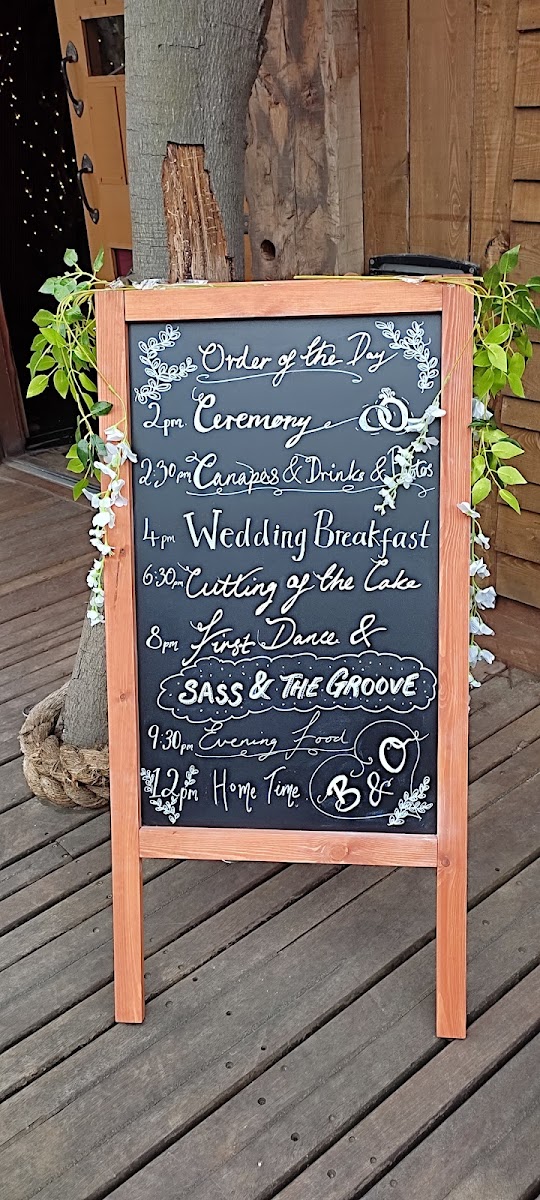 Order of the Day
2pm Ceremony
2:30pm Canapes & Drinks & Photos
4pm Wedding Breakfast
6:30pm Cutting of the Cake
8pm First Dance &
SASS & THE GROOVE
9:30pm Evening Food
12pm Home Time
B & O